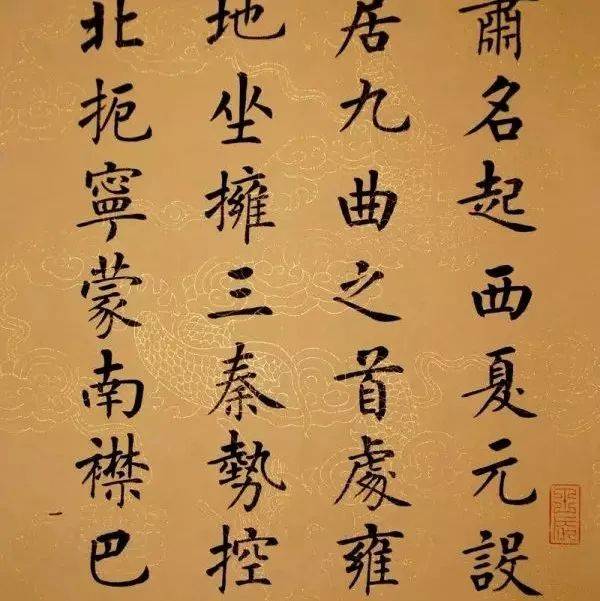 肅名起西夏元設
居九曲之首處雍
地坐擁三秦勢控
北扼寧蒙南襟巴